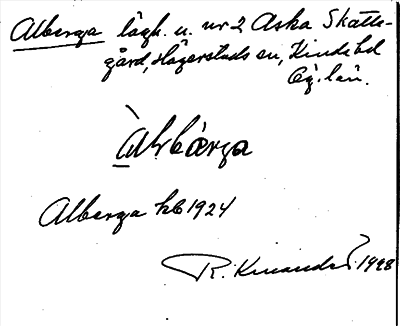 Alberga lägh. u. nr 2 Aska Skatte-
gård, Hägerstads sn, Kinds hd
Ög. län.
Alberga kb 1924
R. Kinander 1928